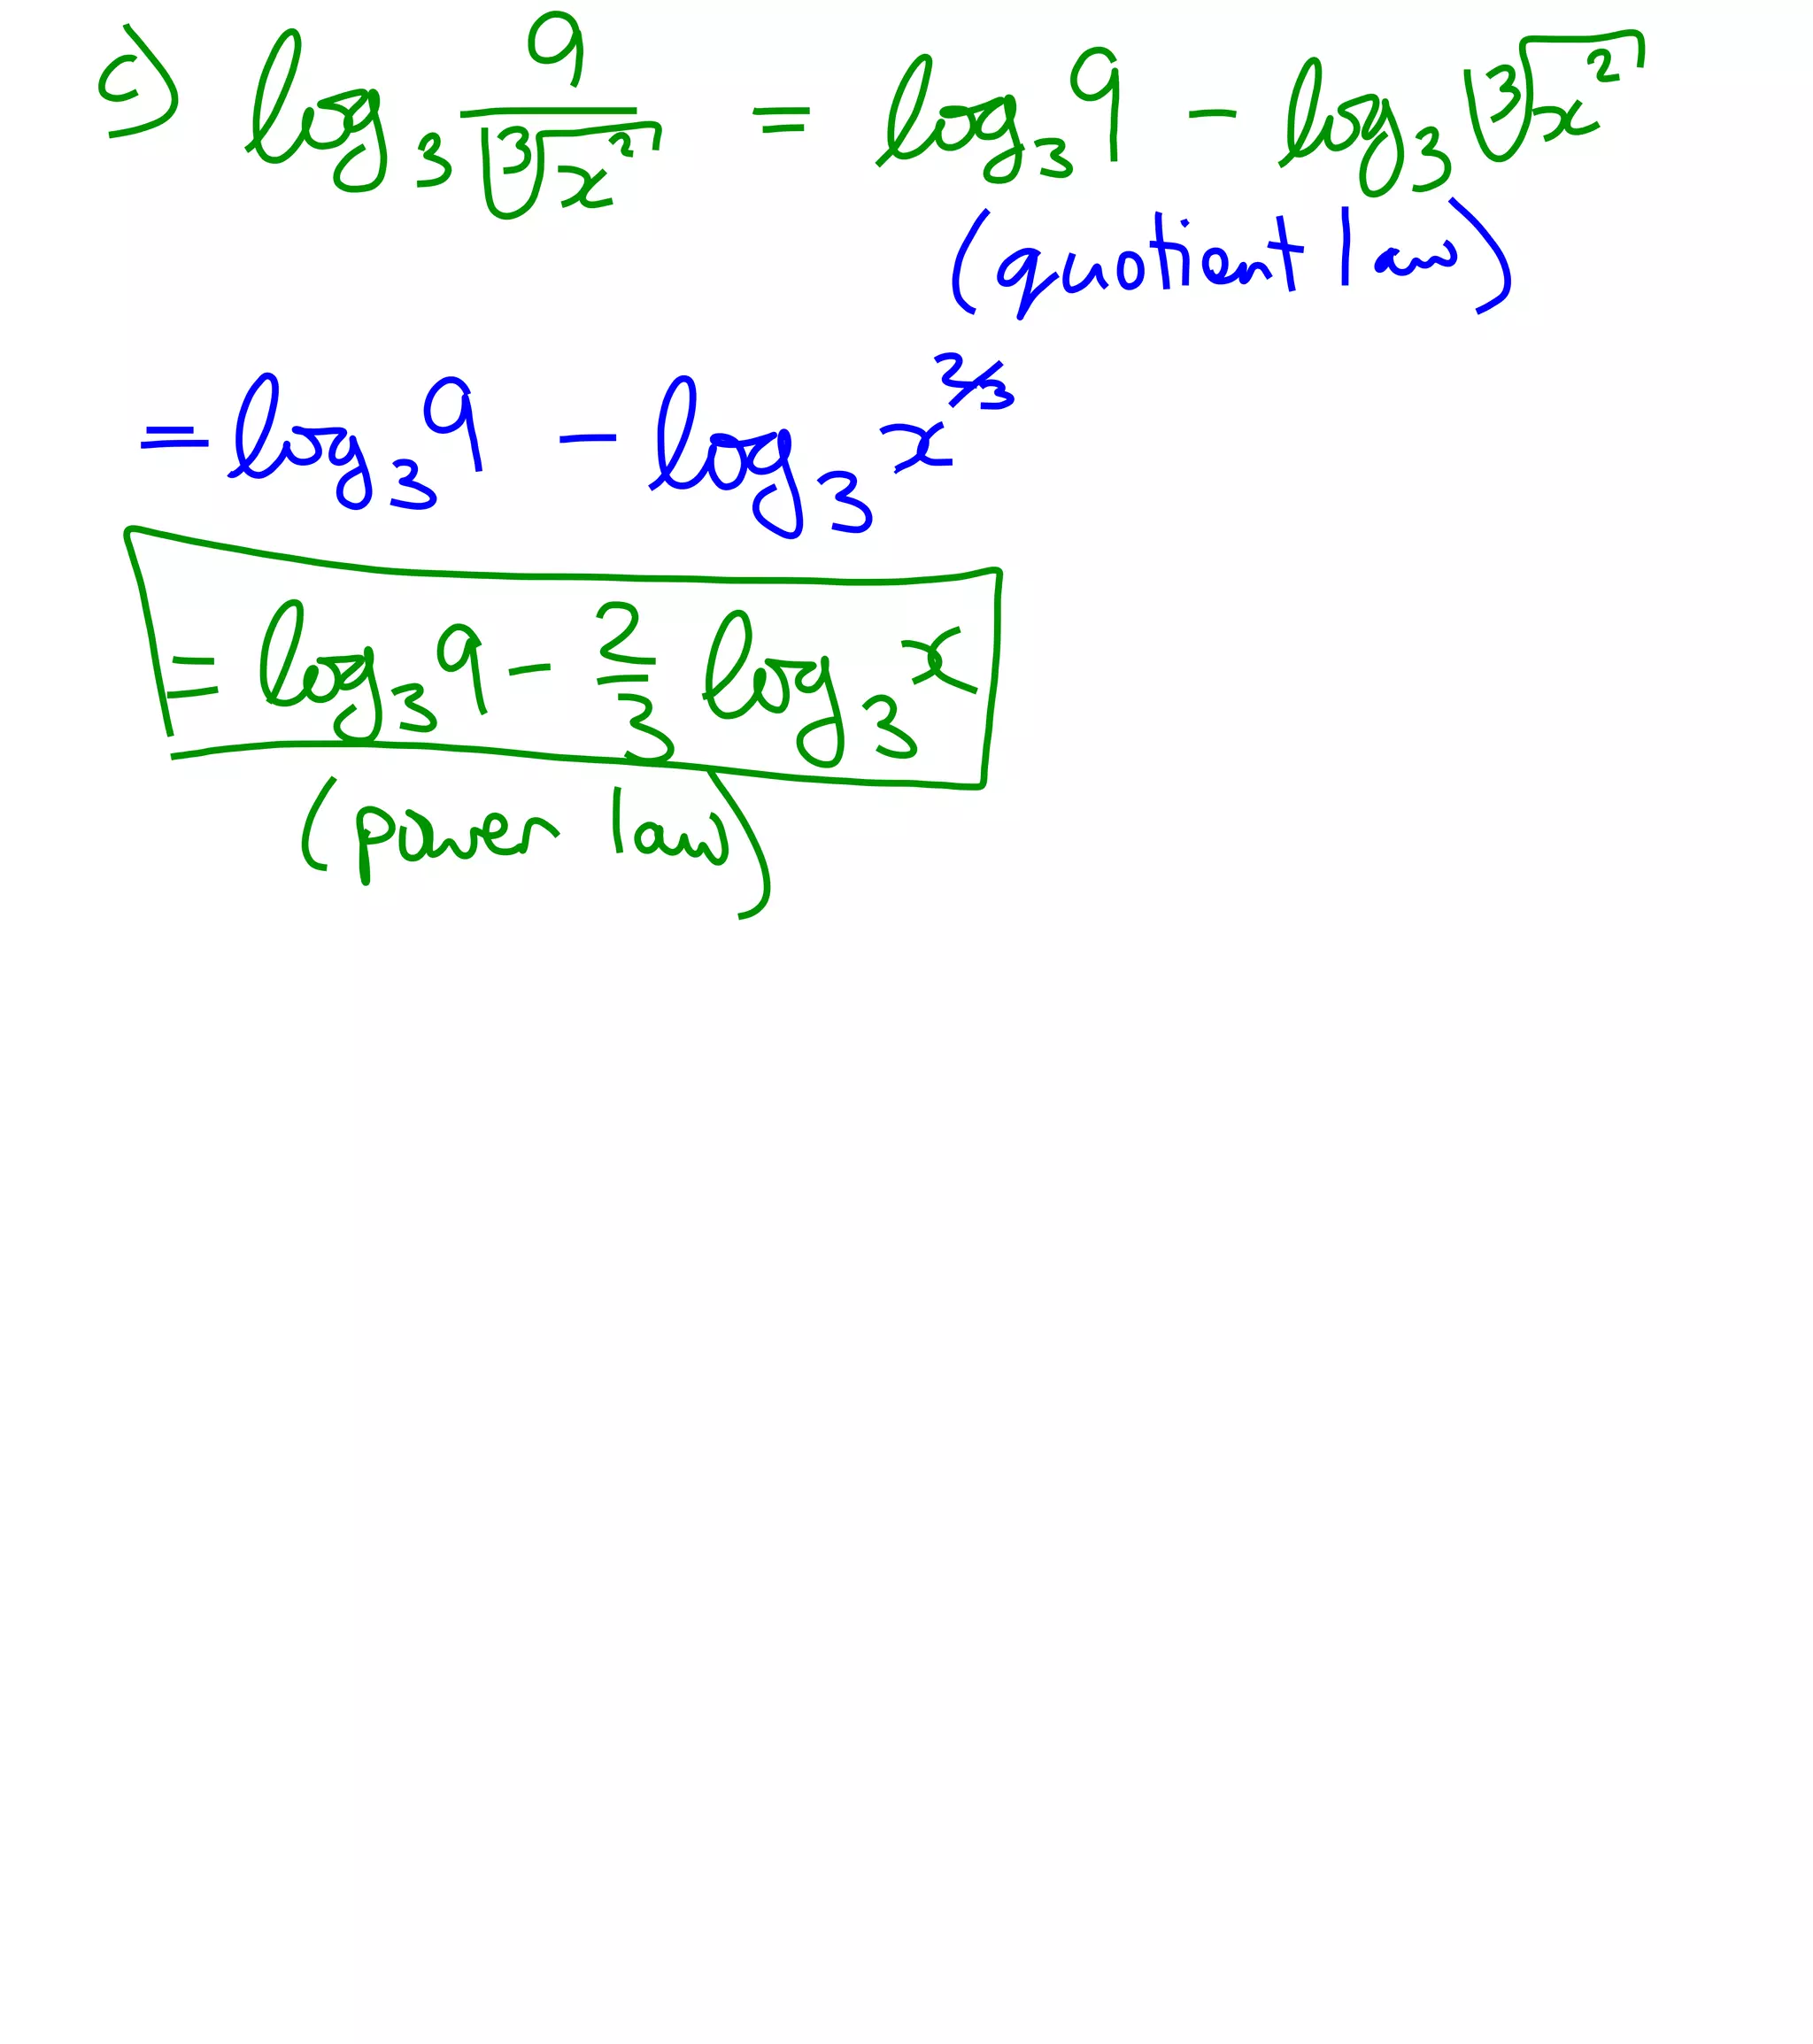 c) log₃ 9/∛x² = log₃ 9 - log₃ ∛x²
(quotient law)
= log₃ 9 - log₃ x^2/3
= log₃ 9 - 2/3 log₃ x
(power law)